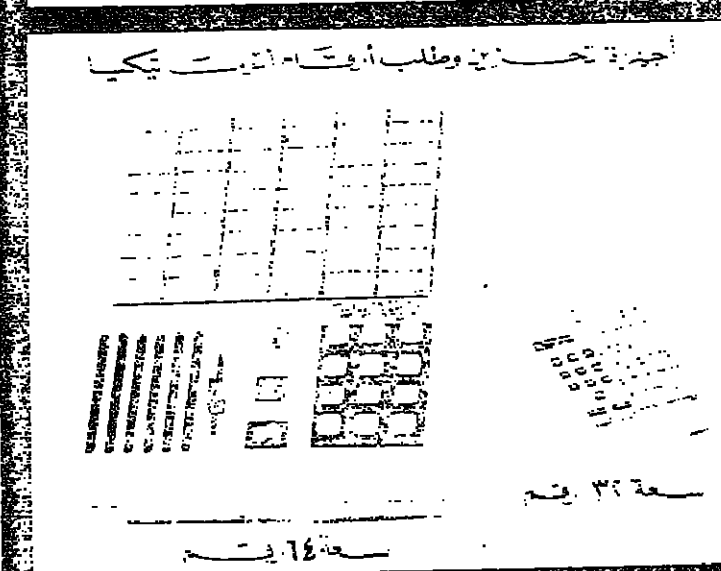 أجهزة تخزين وطلب أرقام أتوماتيكيا
سعة ٣٢ رقم
سعة ٦٤ رقم